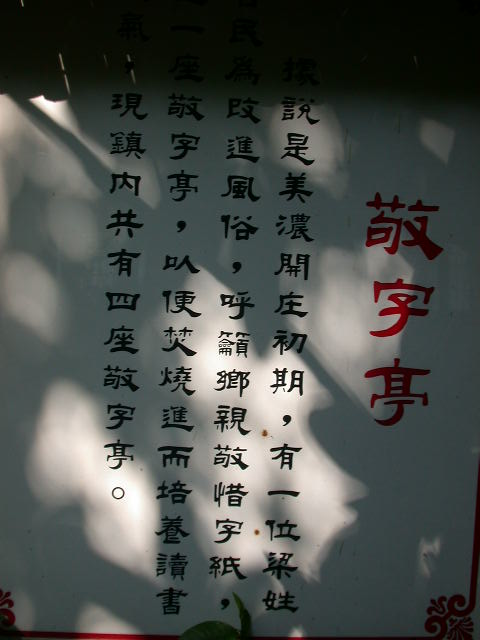 敬字亭
據說是美濃開庄初期，有一位梁姓
居民為改進風俗，呼籲鄉親敬惜字紙，
一座敬字亭，以便焚燒進而培養讀書
氣，現鎮內共有四座敬字亭。